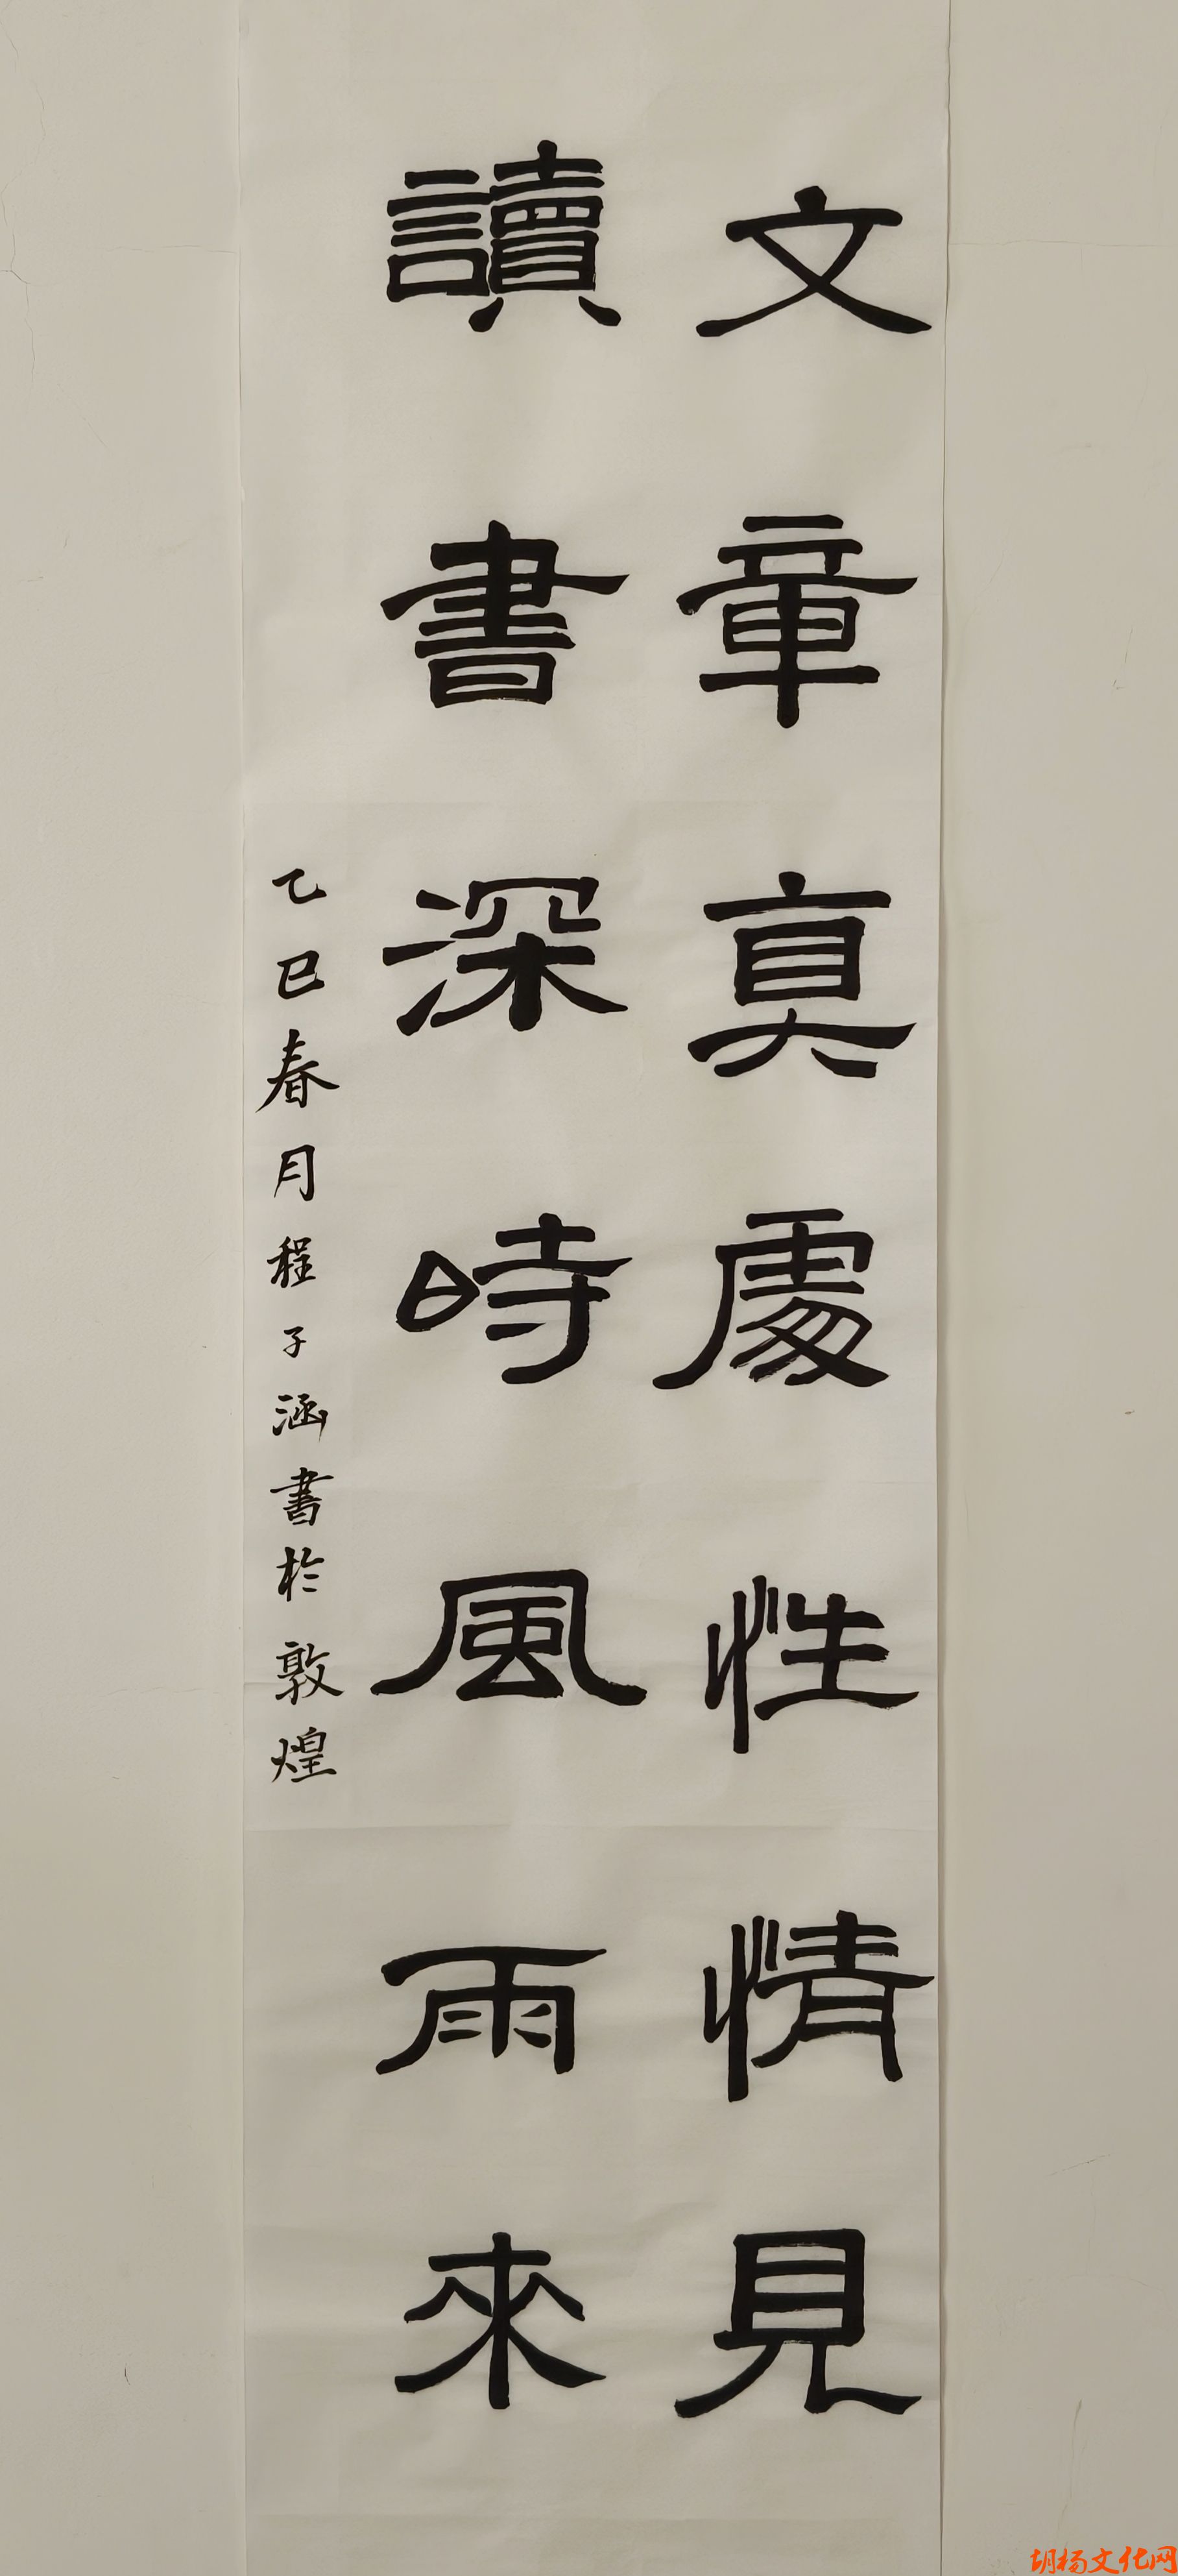 文章真處性情見
讀書深時風雨來
乙巳春月程子涵書於敦煌
胡杨文化网